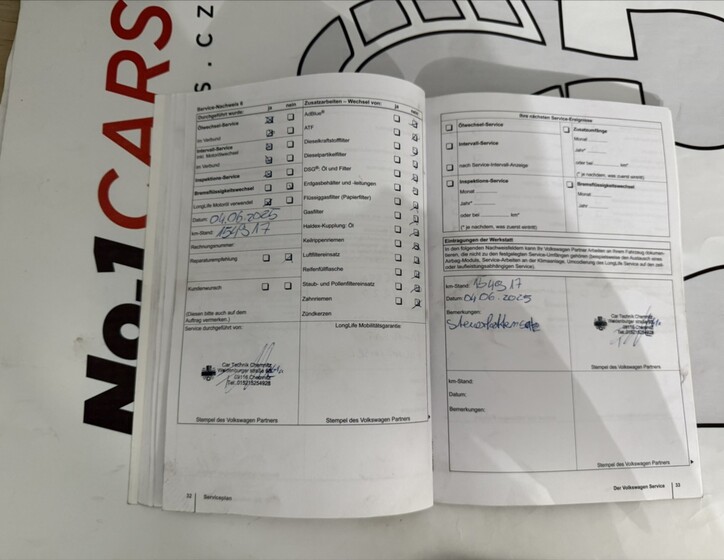 No.1 CARS
S.CZ
Service-Nachweis 6
Durchgeführt wurde: ja nein
Ölwechsel-Service
im Verbund
Intervall-Service
inkl. Motorölwechsel
im Verbund
Inspektions-Service
Bremsflüssigkeitswechsel
LongLife Motoröl verwendet
Datum: 04.06.2025
km-Stand: 154317
Rechnungsnummer:
Reparaturempfehlung
Kundenwunsch
(Diesen bitte auch auf dem
Auftrag vermerken.)
Service durchgeführt von:
Car Technik Chemnitz
09116 Chemnitz
Tel. 015215254928
Stempel des Volkswagen Partners
Zusatzarbeiten – Wechsel von: ja nein
AdBlue®
ATF
Dieselkraftstofffilter
Dieselpartikelfilter
DSG®: Öl und Filter
Erdgasbehälter und -leitungen
Flüssiggasfilter (Papierfilter)
Gasfilter
Haldex-Kupplung: Öl
Keilrippenriemen
Luftfiltereinsatz
Reifenfüllflasche
Staub- und Pollenfiltereinsatz
Zahnriemen
Zündkerzen
LongLife Mobilitätsgarantie
Stempel des Volkswagen Partners
32 Serviceplan
Ihre nächsten Service-Ereignisse
Ölwechsel-Service
Intervall-Service
nach Service-Intervall-Anzeige
Inspektions-Service
Monat
Jahr*
oder bei km*
(* je nachdem, was zuerst eintritt)
Zusatzumfänge
Monat
Jahr*
oder bei km*
(* je nachdem, was zuerst eintritt)
Bremsflüssigkeitswechsel
Eintragungen der Werkstatt
In den folgenden Nachweisfeldern kann Ihr Volkswagen Partner Arbeiten an Ihrem Fahrzeug dokumen-
tieren, die nicht zu den festgelegten Service-Umfängen gehören (beispielsweise den Austausch eines
Airbag-Moduls, Service-Arbeiten an der Klimaanlage, Umstellung des LongLife Service auf den zeit-
oder laufleistungsabhängigen Service).
km-Stand: 154317
Datum: 04.06.2025
Bemerkungen:
Car Technik Chemnitz
09116 Chemnitz
Stempel des Volkswagen Partners
km-Stand:
Datum:
Bemerkungen:
Stempel des Volkswagen Partners
Der Volkswagen Service 33